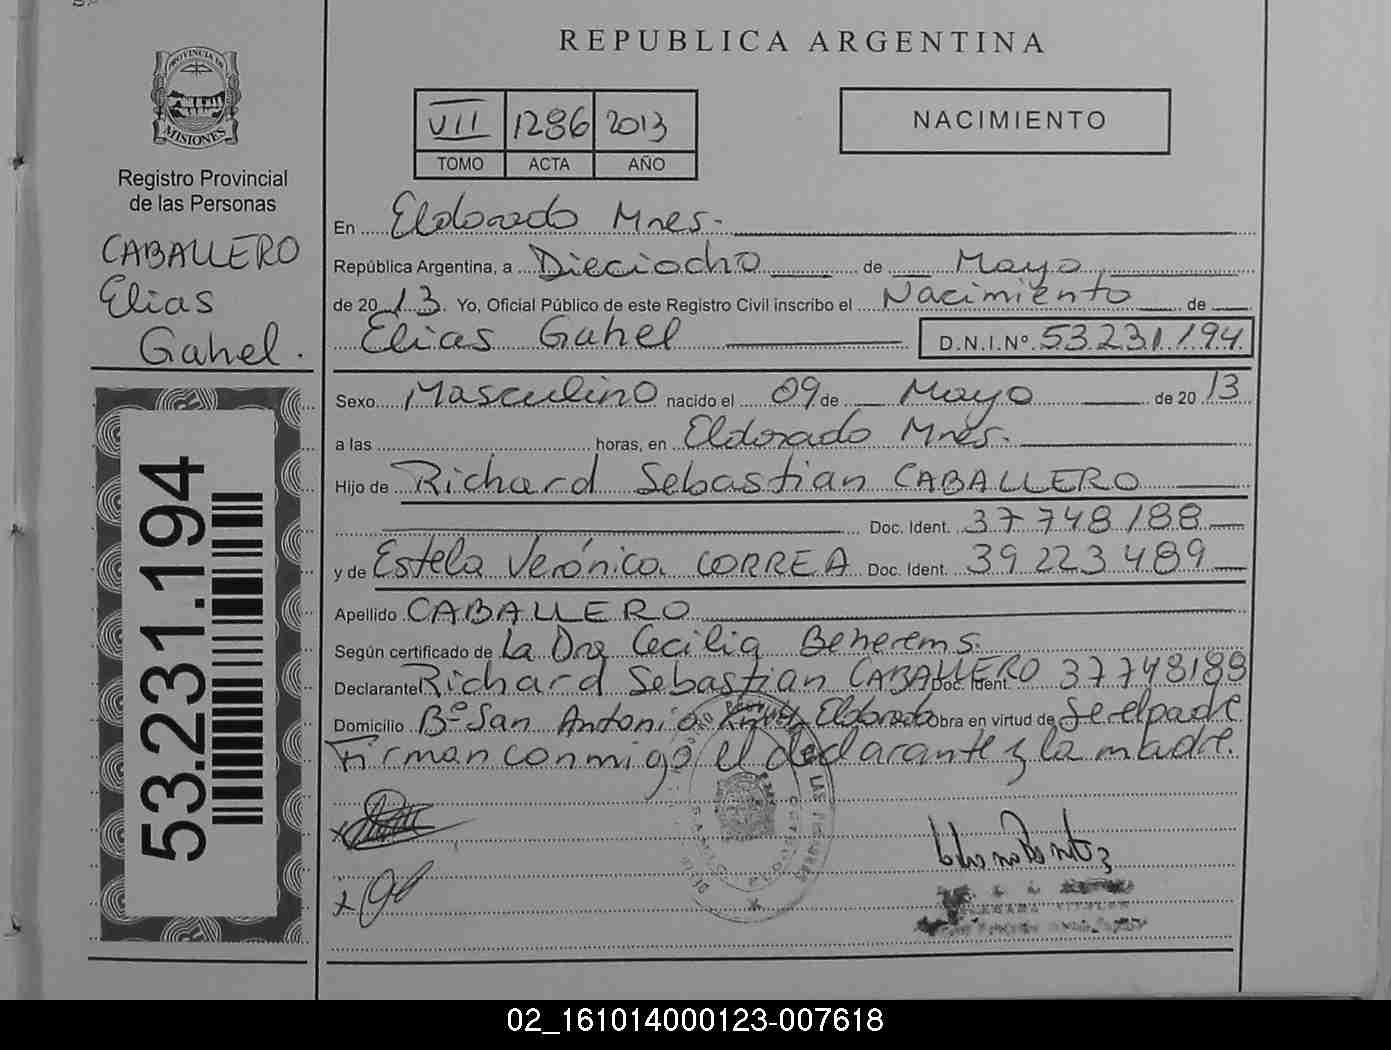 REPUBLICA ARGENTINA
PROVINCIA DE
MISIONES
Registro Provincial
de las Personas
CABALLERO
Elias
Gahel.
53.231.194
VII 1286 2013
TOMO ACTA AÑO
NACIMIENTO
En Eldorado Mnes.
República Argentina, a Dieciocho de Mayo
de 2013. Yo, Oficial Público de este Registro Civil inscribo el Nacimiento de
Elias Gahel D.N.I.Nº 53.231.194
Sexo Masculino nacido el 09 de Mayo de 2013
a las horas, en Eldorado Mnes.
Hijo de Richard Sebastian CABALLERO
Doc. Ident. 37748188
y de Estela Verónica CORREA Doc. Ident. 39223489
Apellido CABALLERO
Según certificado de La Dra Cecilia
Declarante Richard Sebastian CABALLERO Doc. Ident. 37748188
Domicilio Bº San Antonio Eldorado Obra en virtud de Ser el padre
Firman conmigo el declarante y la madre.
02_161014000123-007618